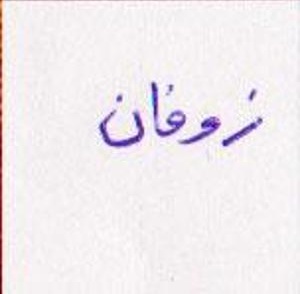 زوفان